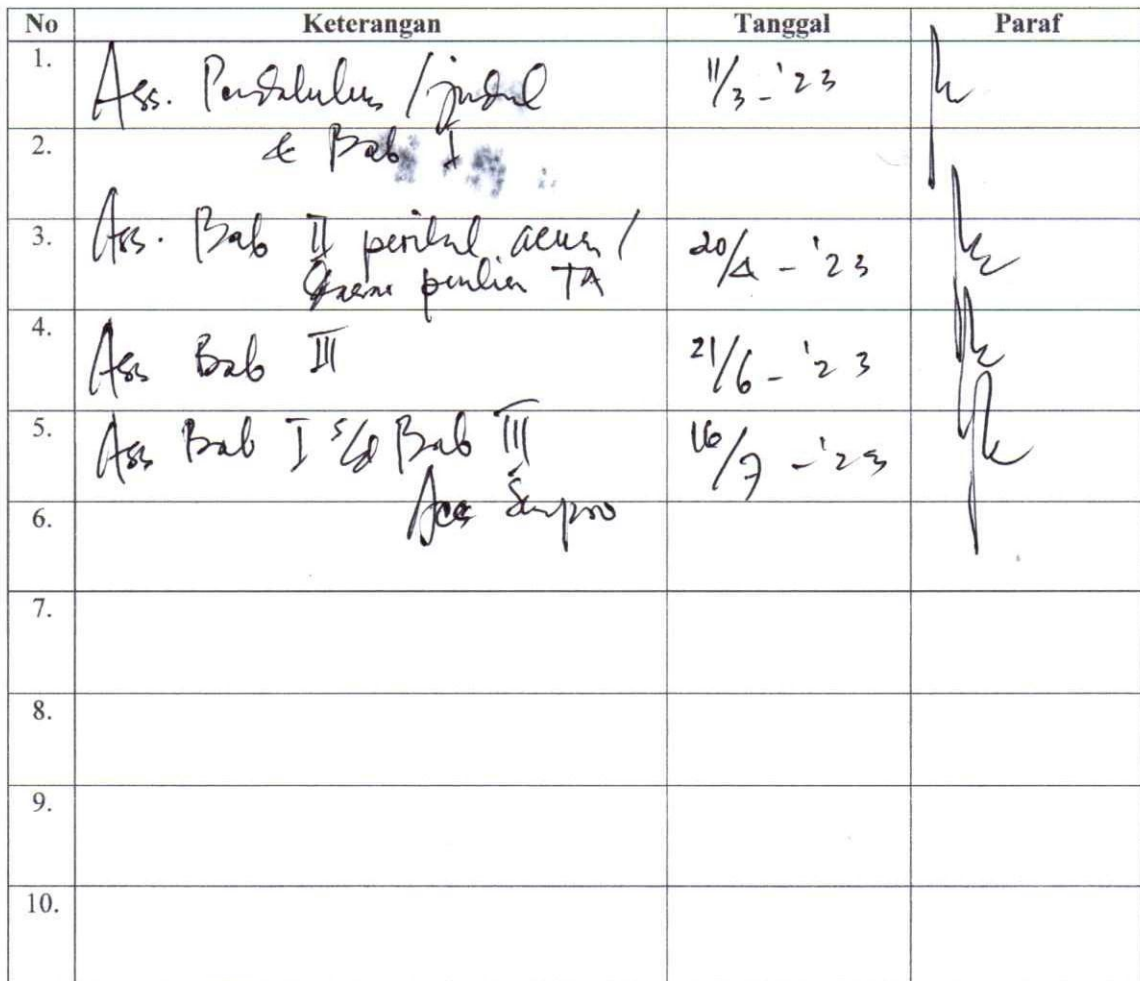 No Keterangan Tanggal Paraf
1. Ass. Pendahuluan / judul 11/3 - '23
2. & Bab I
3. Ass. Bab II perihal acuan / 20/4 - '23
TA
4. Ass Bab III 21/6 - '23
5. Ass Bab I s/d Bab III 16/7 - '23
6. Acc Sempro
7.
8.
9.
10.